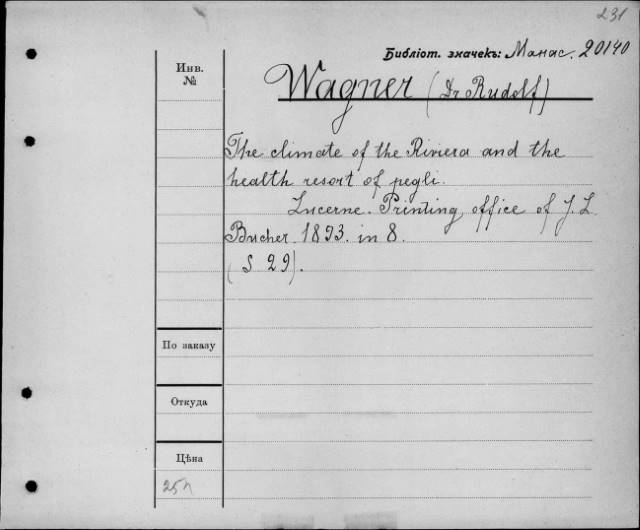 231
Библіот. значекъ: Манас. 20140
Инв.
№
Wagner (Dr Rudolf)
The climate of the Riviera and the
health resort of pegli.
Lucerne. Printing office of J. L.
Bucher. 1893. in 8.
(S. 29).
По заказу
Откуда
Цѣна